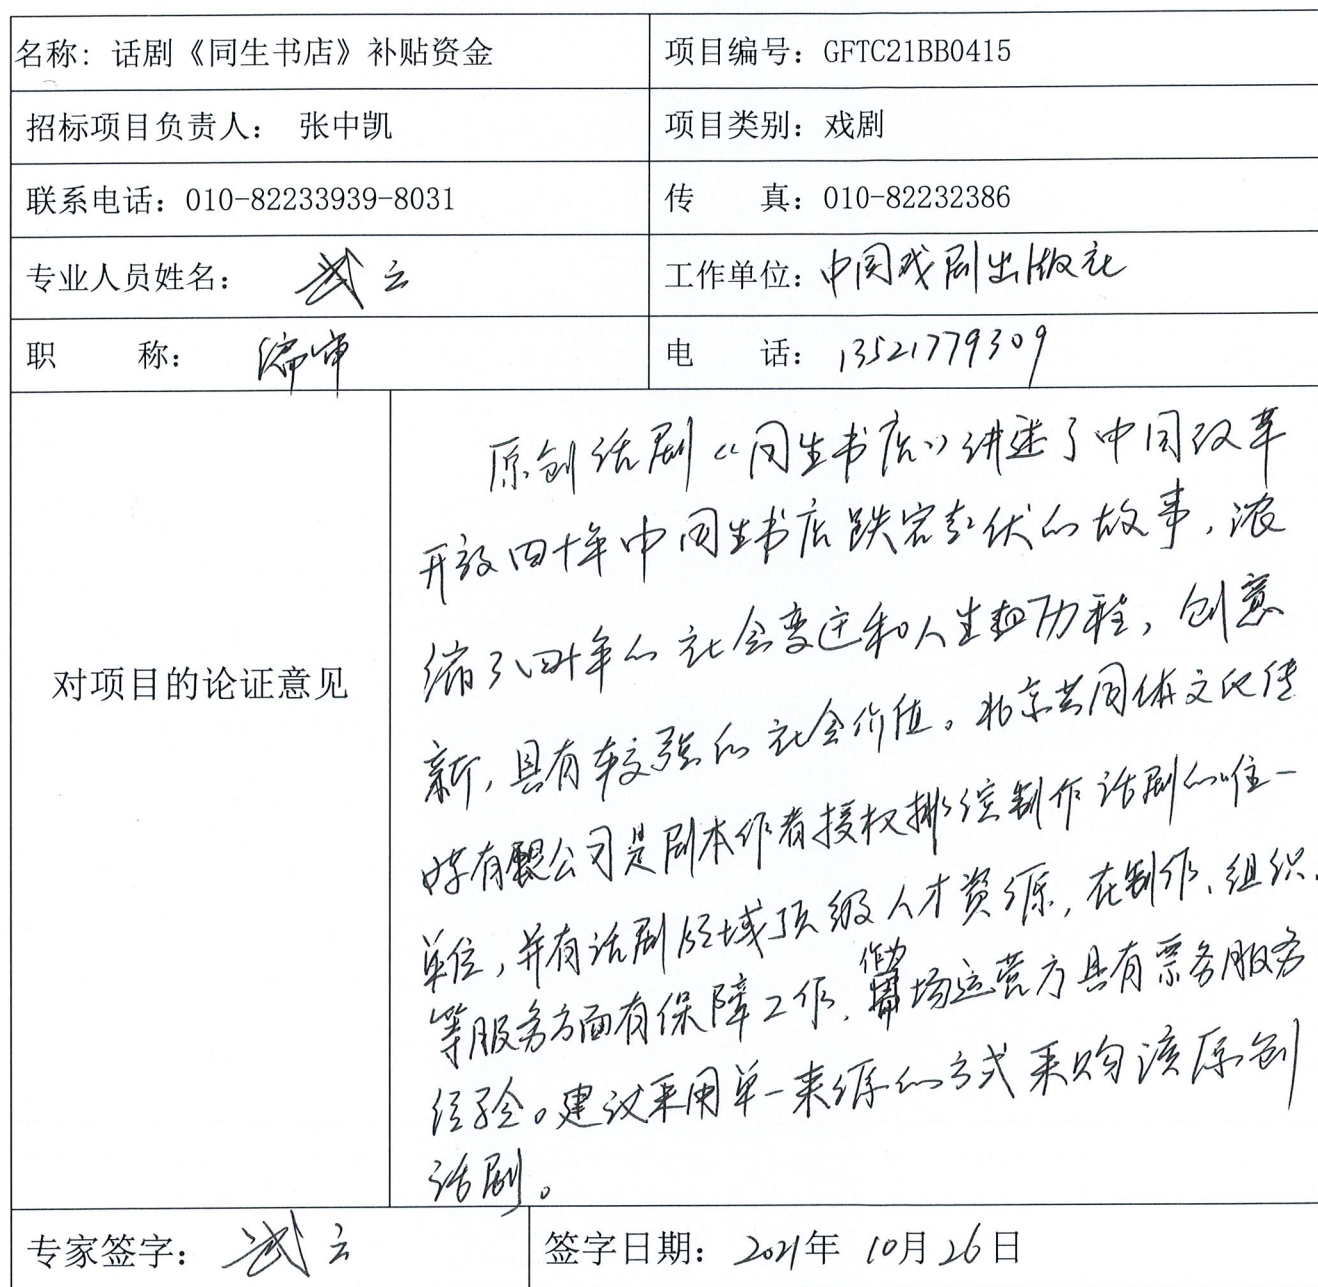 名称: 话剧《同生书店》补贴资金 项目编号: GFTC21BB0415
招标项目负责人: 张中凯 项目类别: 戏剧
联系电话: 010-82233939-8031 传 真: 010-82232386
专业人员姓名: 武云 工作单位: 中国戏剧出版社
职 称: 编审 电 话: 13521779309
对项目的论证意见
原创话剧《同生书店》讲述了中国改革
开放四十年中同生书店跌宕起伏的故事,浓
缩了四十年的社会变迁和人生历程,创意
新,具有较强的社会价值。北京共同体文化传
媒有限公司是剧本作者授权排练制作话剧的唯一
单位,并有话剧领域顶级人才资源,在制作、组织、
等服务方面有保障工作,作为
市场运营方具有票务服务
经验。建议采用单一来源的方式采购该原创
话剧。
专家签字: 武云 签字日期: 2021年10月26日